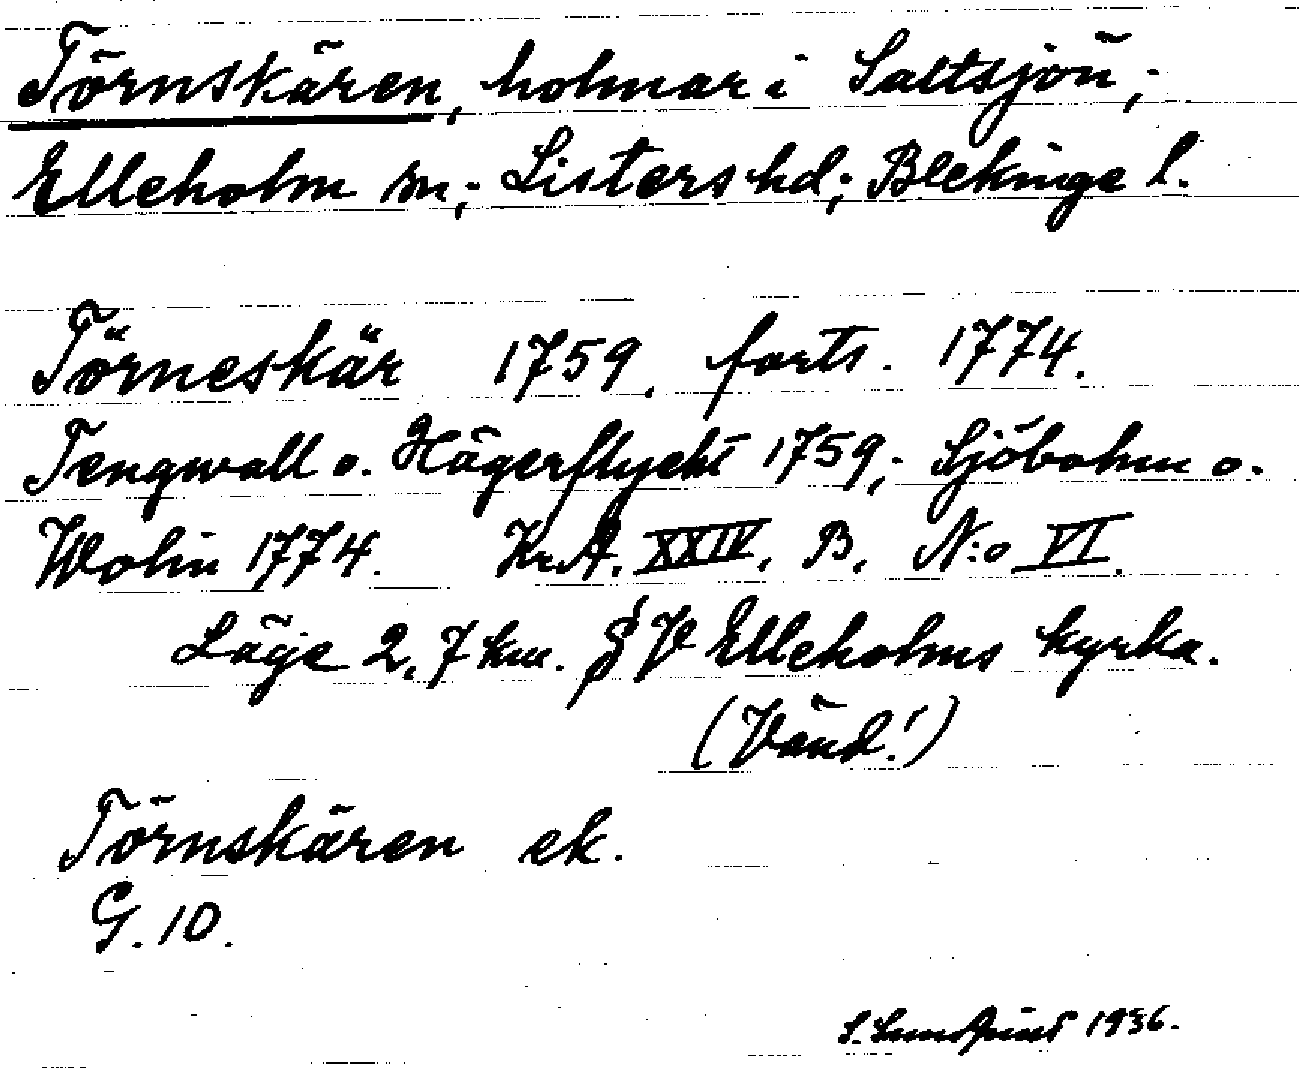 Törnskären, holmar i Saltsjön;
Elleholm sn; Listers hd; Blekinge l.
Törneskär 1759. forts. 1774.
Tengwall o. Hägerflycht 1759; Sjöbohm o.
Wolin 1774. KrA. XXIV. B. N:o VI.
Läge 2,7 km. SV Elleholms kyrka.
(Vänd!)
Törnskären ek.
G. 10.
S. Sundquist 1936.